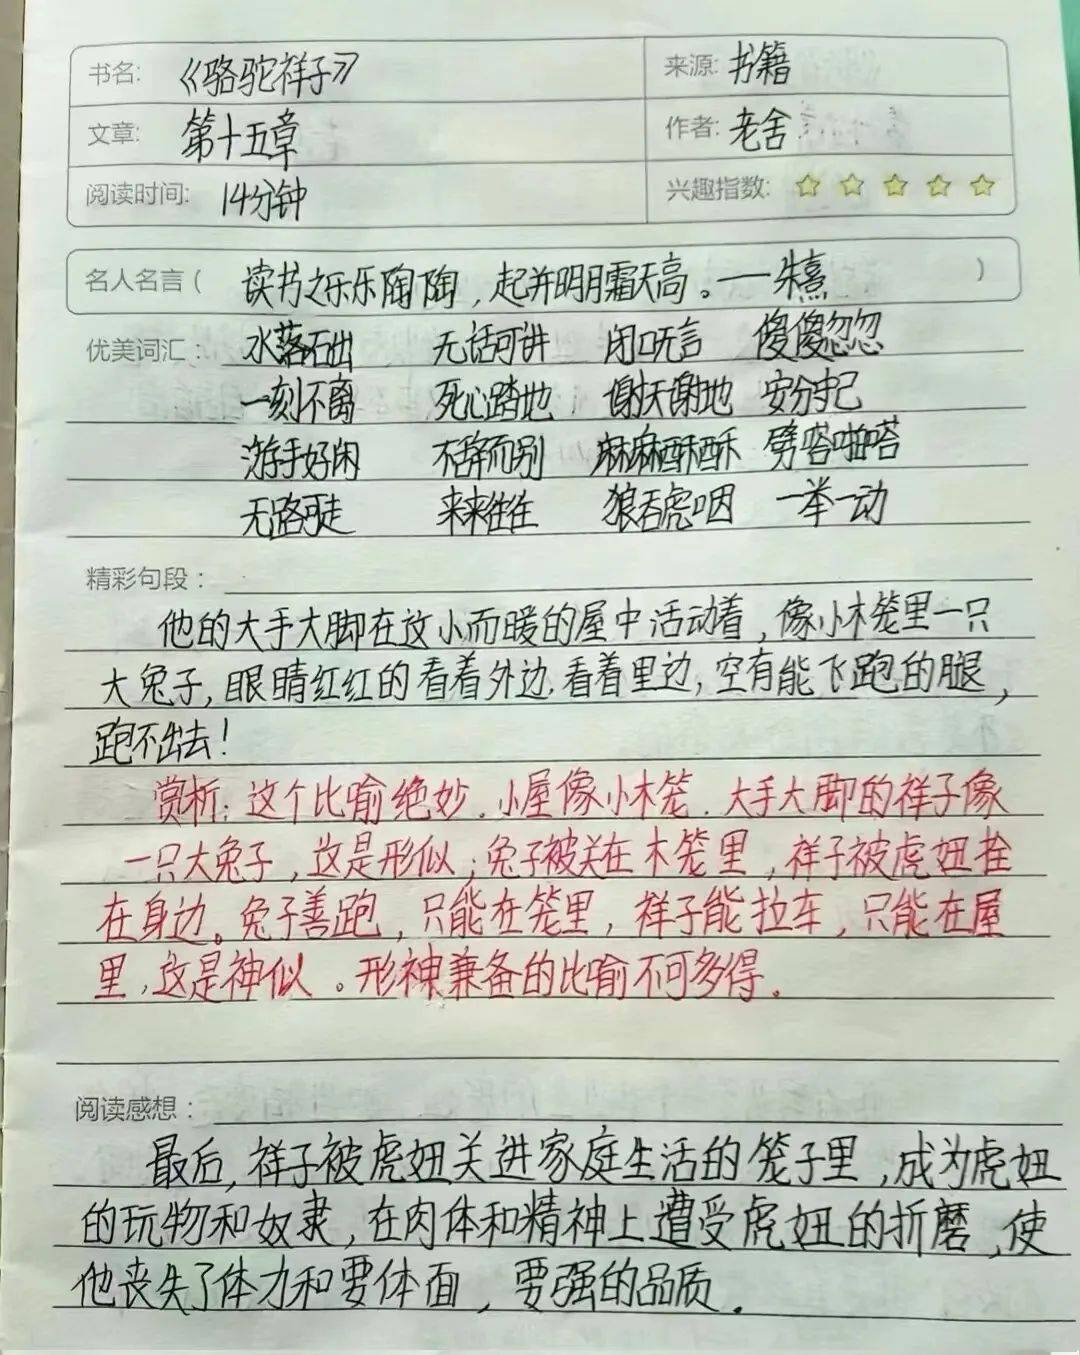 书名: 《骆驼祥子》 来源: 书籍
文章: 第十五章 作者: 老舍
阅读时间: 14分钟 兴趣指数: ☆ ☆ ☆ ☆ ☆
名人名言( 读书之乐乐陶陶，起并明月霜天高。——朱熹 )
优美词汇： 水落石出 无话可讲 闭口无言 傻傻忽忽
一刻不离 死心踏地 谢天谢地 安分守己
游手好闲 不辞而别 麻麻酥酥 劈嗒啪嗒
无路可走 来来往往 狼吞虎咽 一举一动
精彩句段：
他的大手大脚在这小而暖的屋中活动着，像小木笼里一只
大兔子，眼睛红红的看着外边，看着里边，空有能飞跑的腿，
跑不出去！
赏析：这个比喻绝妙．小屋像小木笼．大手大脚的祥子像
一只大兔子，这是形似；兔子被关在木笼里，祥子被虎妞拴
在身边。兔子善跑，只能在笼里，祥子能拉车，只能在屋
里，这是神似。形神兼备的比喻不可多得．
阅读感想：
最后，祥子被虎妞关进家庭生活的笼子里，成为虎妞
的玩物和奴隶，在肉体和精神上遭受虎妞的折磨，使
他丧失了体力和要体面，要强的品质．